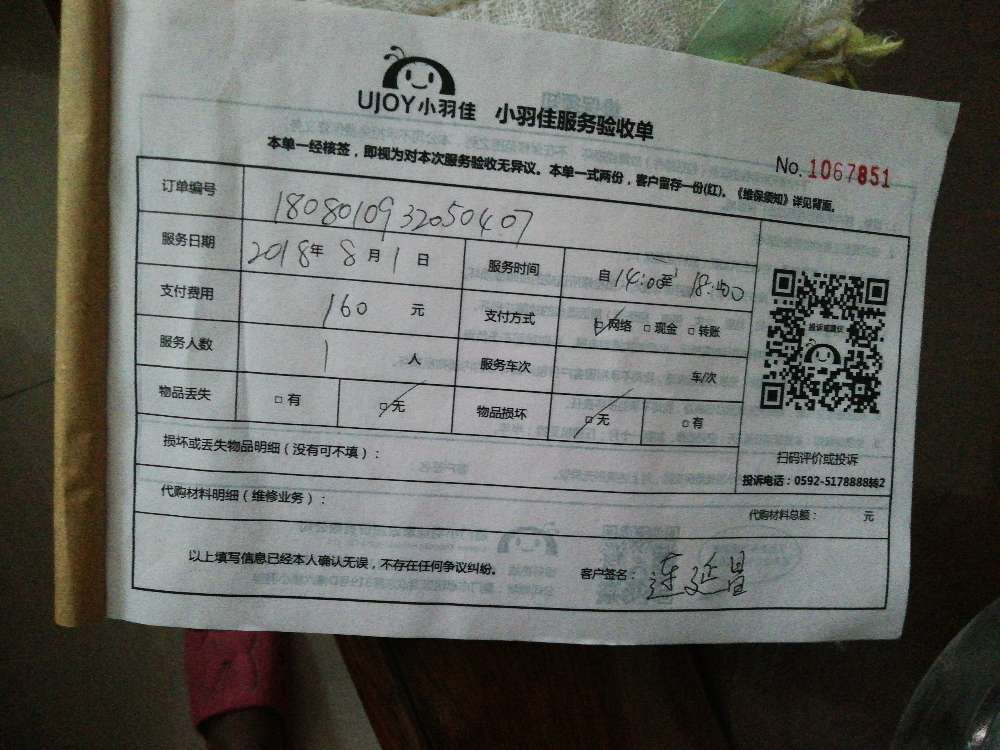 UJOY小羽佳 小羽佳服务验收单
本单一经核签，即视为对本次服务验收无异议。本单一式两份，客户留存一份(红)。《维保须知》详见背面。
No. 1067851
订单编号 1808010932050407
服务日期 2018年 8月1日 服务时间 自14:00至18:00
支付费用 160 元 支付方式 □网络 □现金 □转账
服务人数 1 人 服务车次 车/次
物品丢失 □有 □无 物品损坏 □无 □有
投诉或建议
扫码评价或投诉
投诉电话：0592-5178888转2
损坏或丢失物品明细（没有可不填）：
代购材料明细（维修业务）：
代购材料总额： 元
以上填写信息已经本人确认无误，不存在任何争议纠纷。 客户签名：连延昌